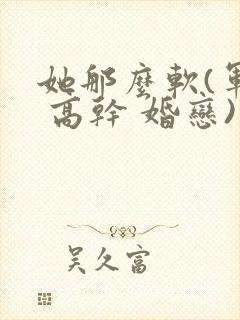 她那麼軟(軍
高幹 婚戀)
吳久富